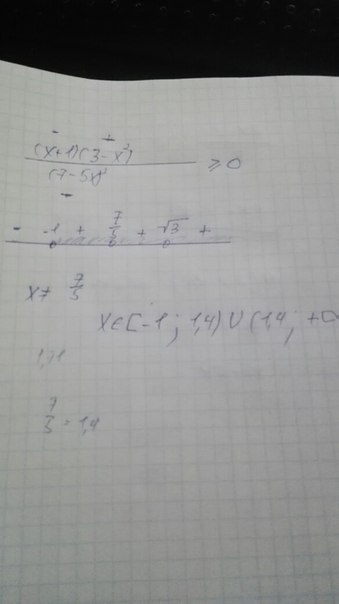 - +
(x+1)(3-x²)
(7-5x)² ≥ 0
-
- -1 + 7/5 + √3 +
x ≠ 7/5
x∈[-1; 1,4) ∪ (1,4; +
1,71
7/5 = 1,4